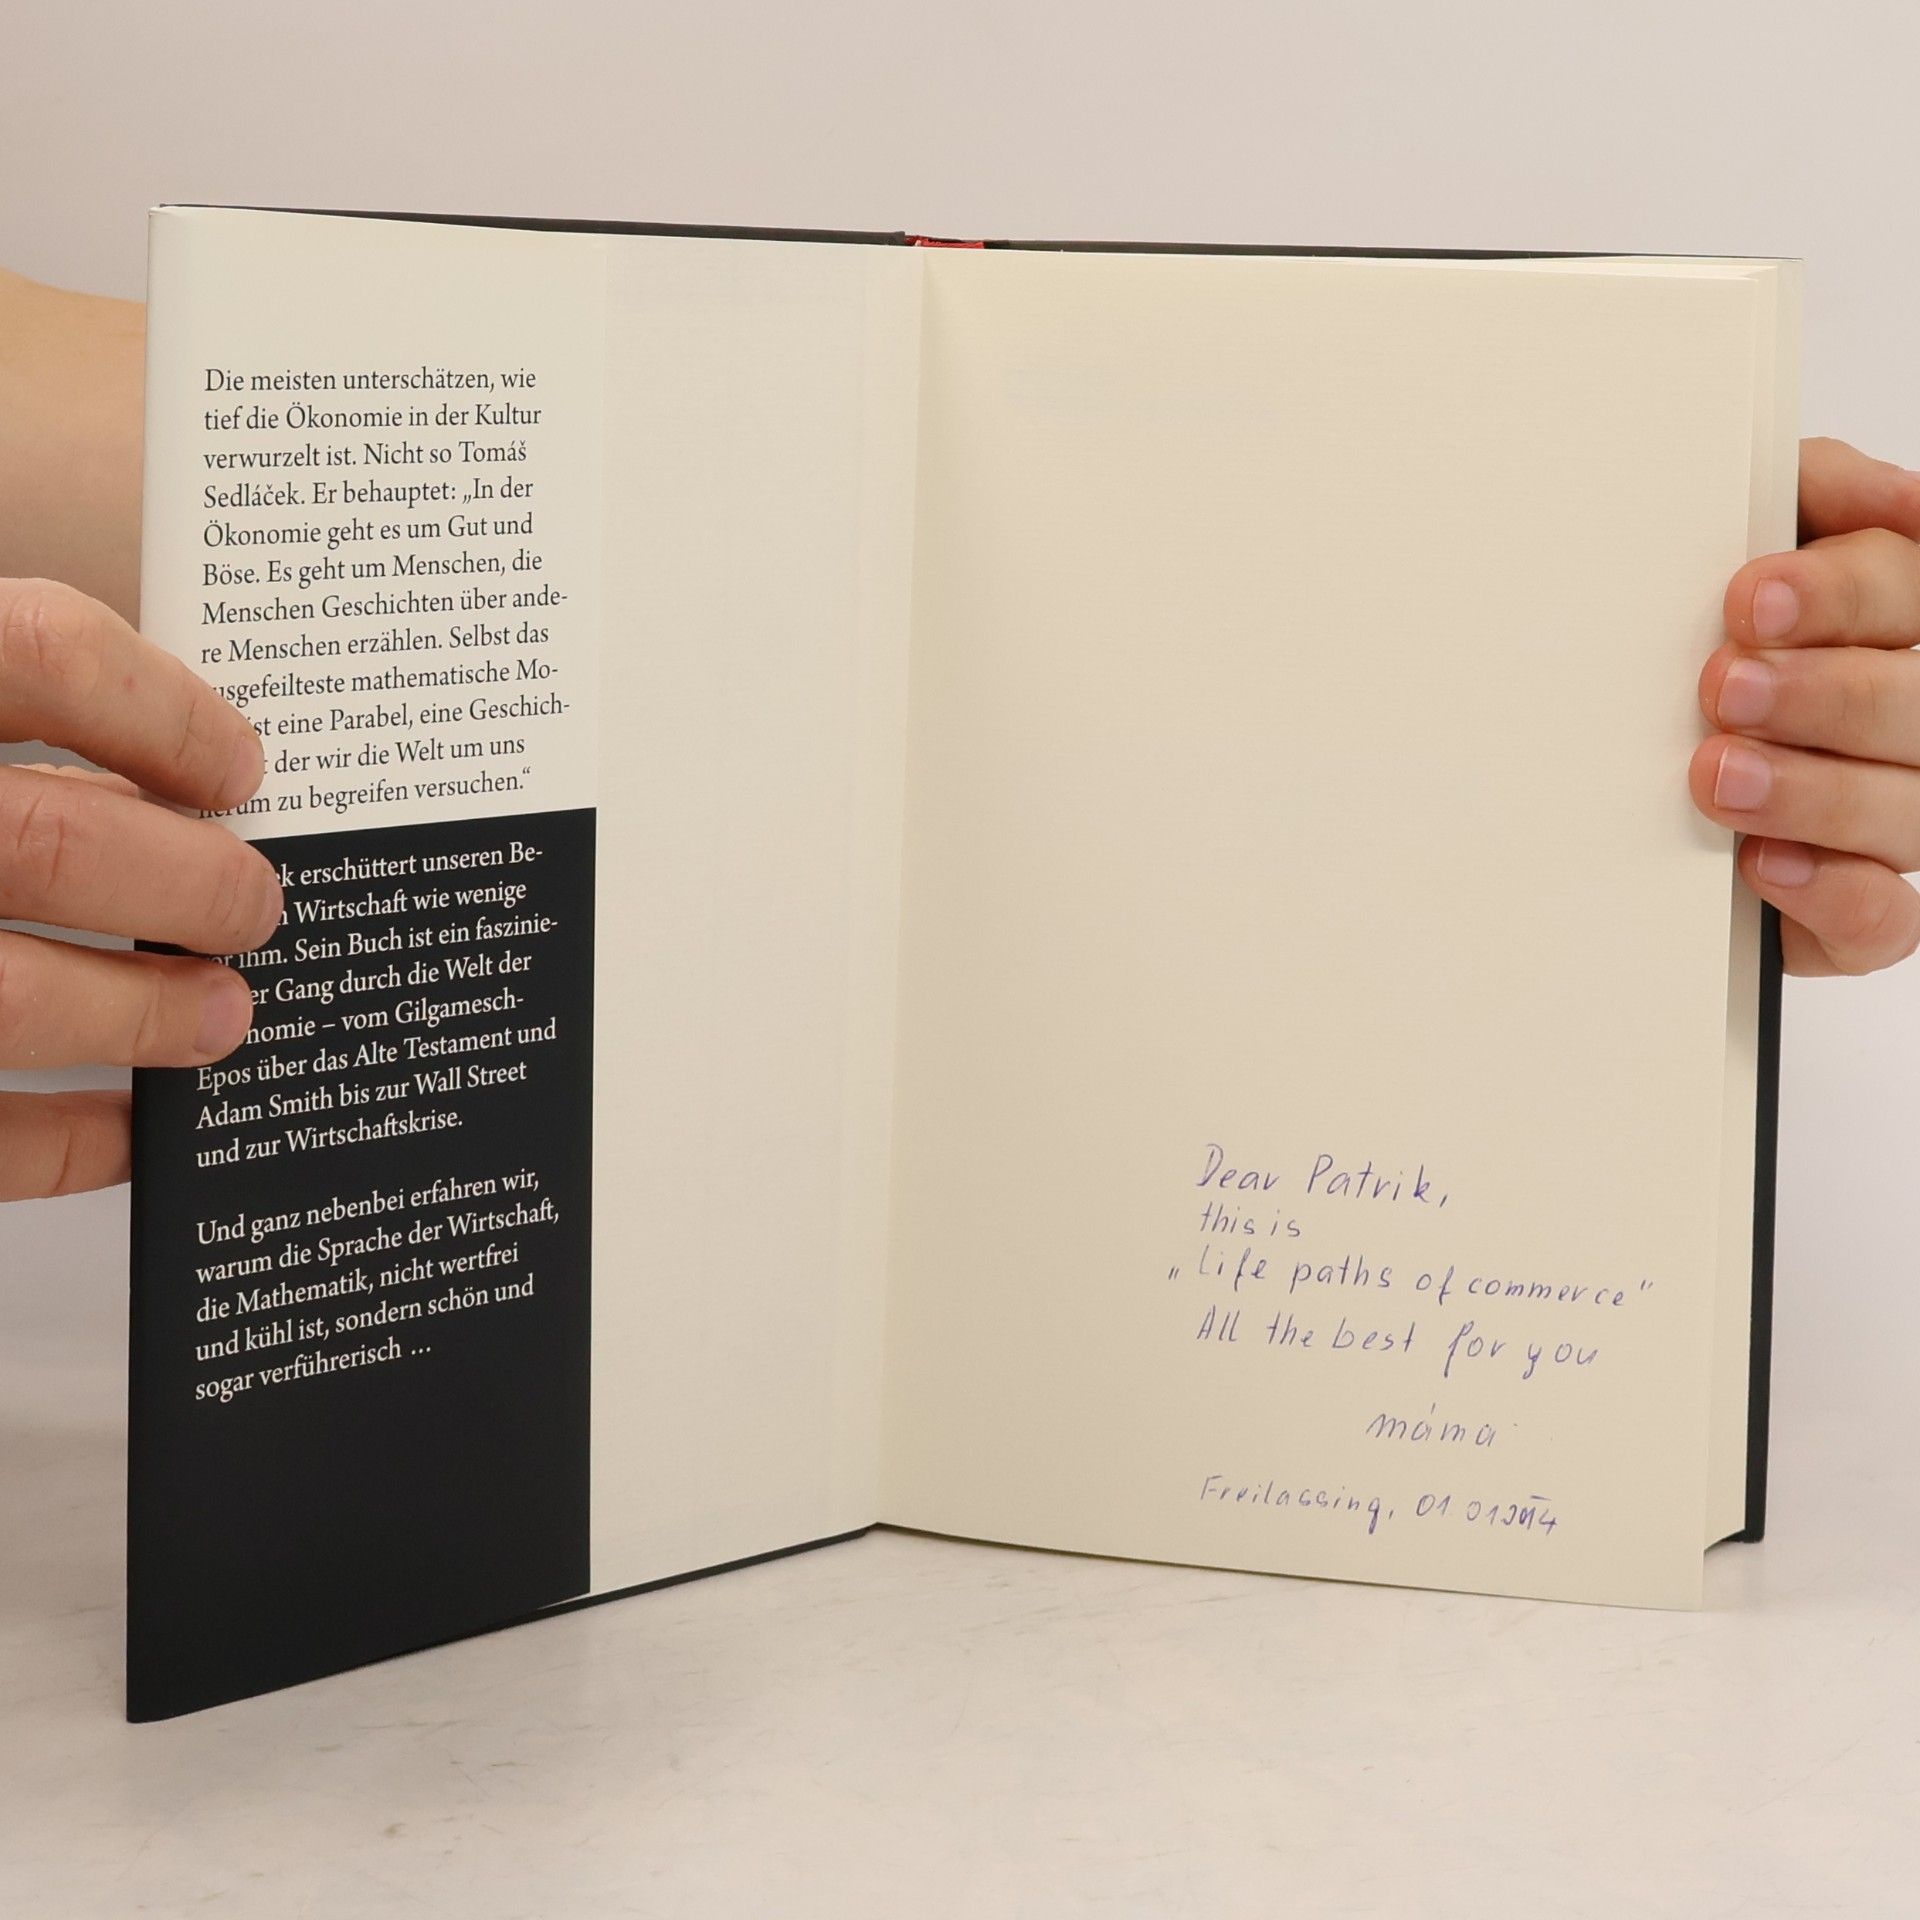 Die meisten unterschätzen, wie
tief die Ökonomie in der Kultur
verwurzelt ist. Nicht so Tomáš
Sedláček. Er behauptet: „In der
Ökonomie geht es um Gut und
Böse. Es geht um Menschen, die
Menschen Geschichten über ande-
re Menschen erzählen. Selbst das
mathematische Mo-
eine Parabel, eine Geschich-
der wir die Welt um uns
zu begreifen versuchen.“
erschüttert unseren Be-
Wirtschaft wie wenige
ihm. Sein Buch ist ein faszinie-
Gang durch die Welt der
– vom Gilgamesch-
Epos über das Alte Testament und
Adam Smith bis zur Wall Street
und zur Wirtschaftskrise.
Und ganz nebenbei erfahren wir,
warum die Sprache der Wirtschaft,
die Mathematik, nicht wertfrei
und kühl ist, sondern schön und
sogar verführerisch ...
Dear Patrik,
this is
„Life paths of commerce“
All the best for you
máma
Freilassing, 01.01.2014